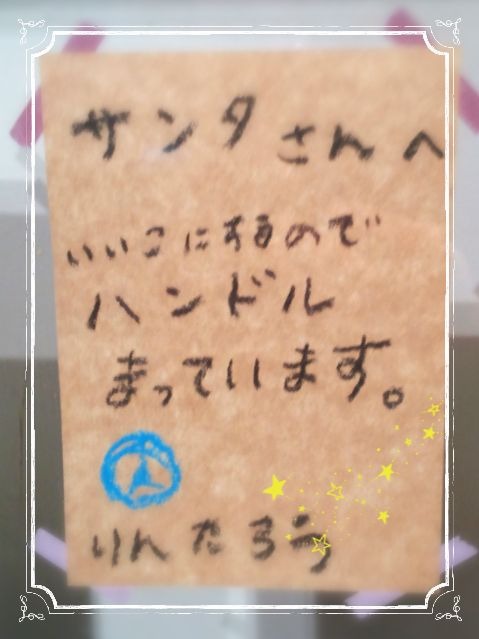 サンタさんへ
いいこにするので
ハンドル
まっています。
りんたろう